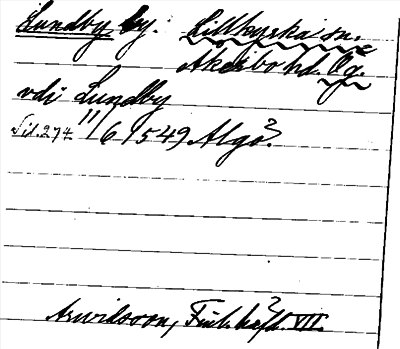 Lundby by. Lillkyrka sn.
Åkerbo hd. Ög.
vdi Lundby
Sid. 274 11/6 1549 Algö?
Arwidsson, Finl. häfd. VII.